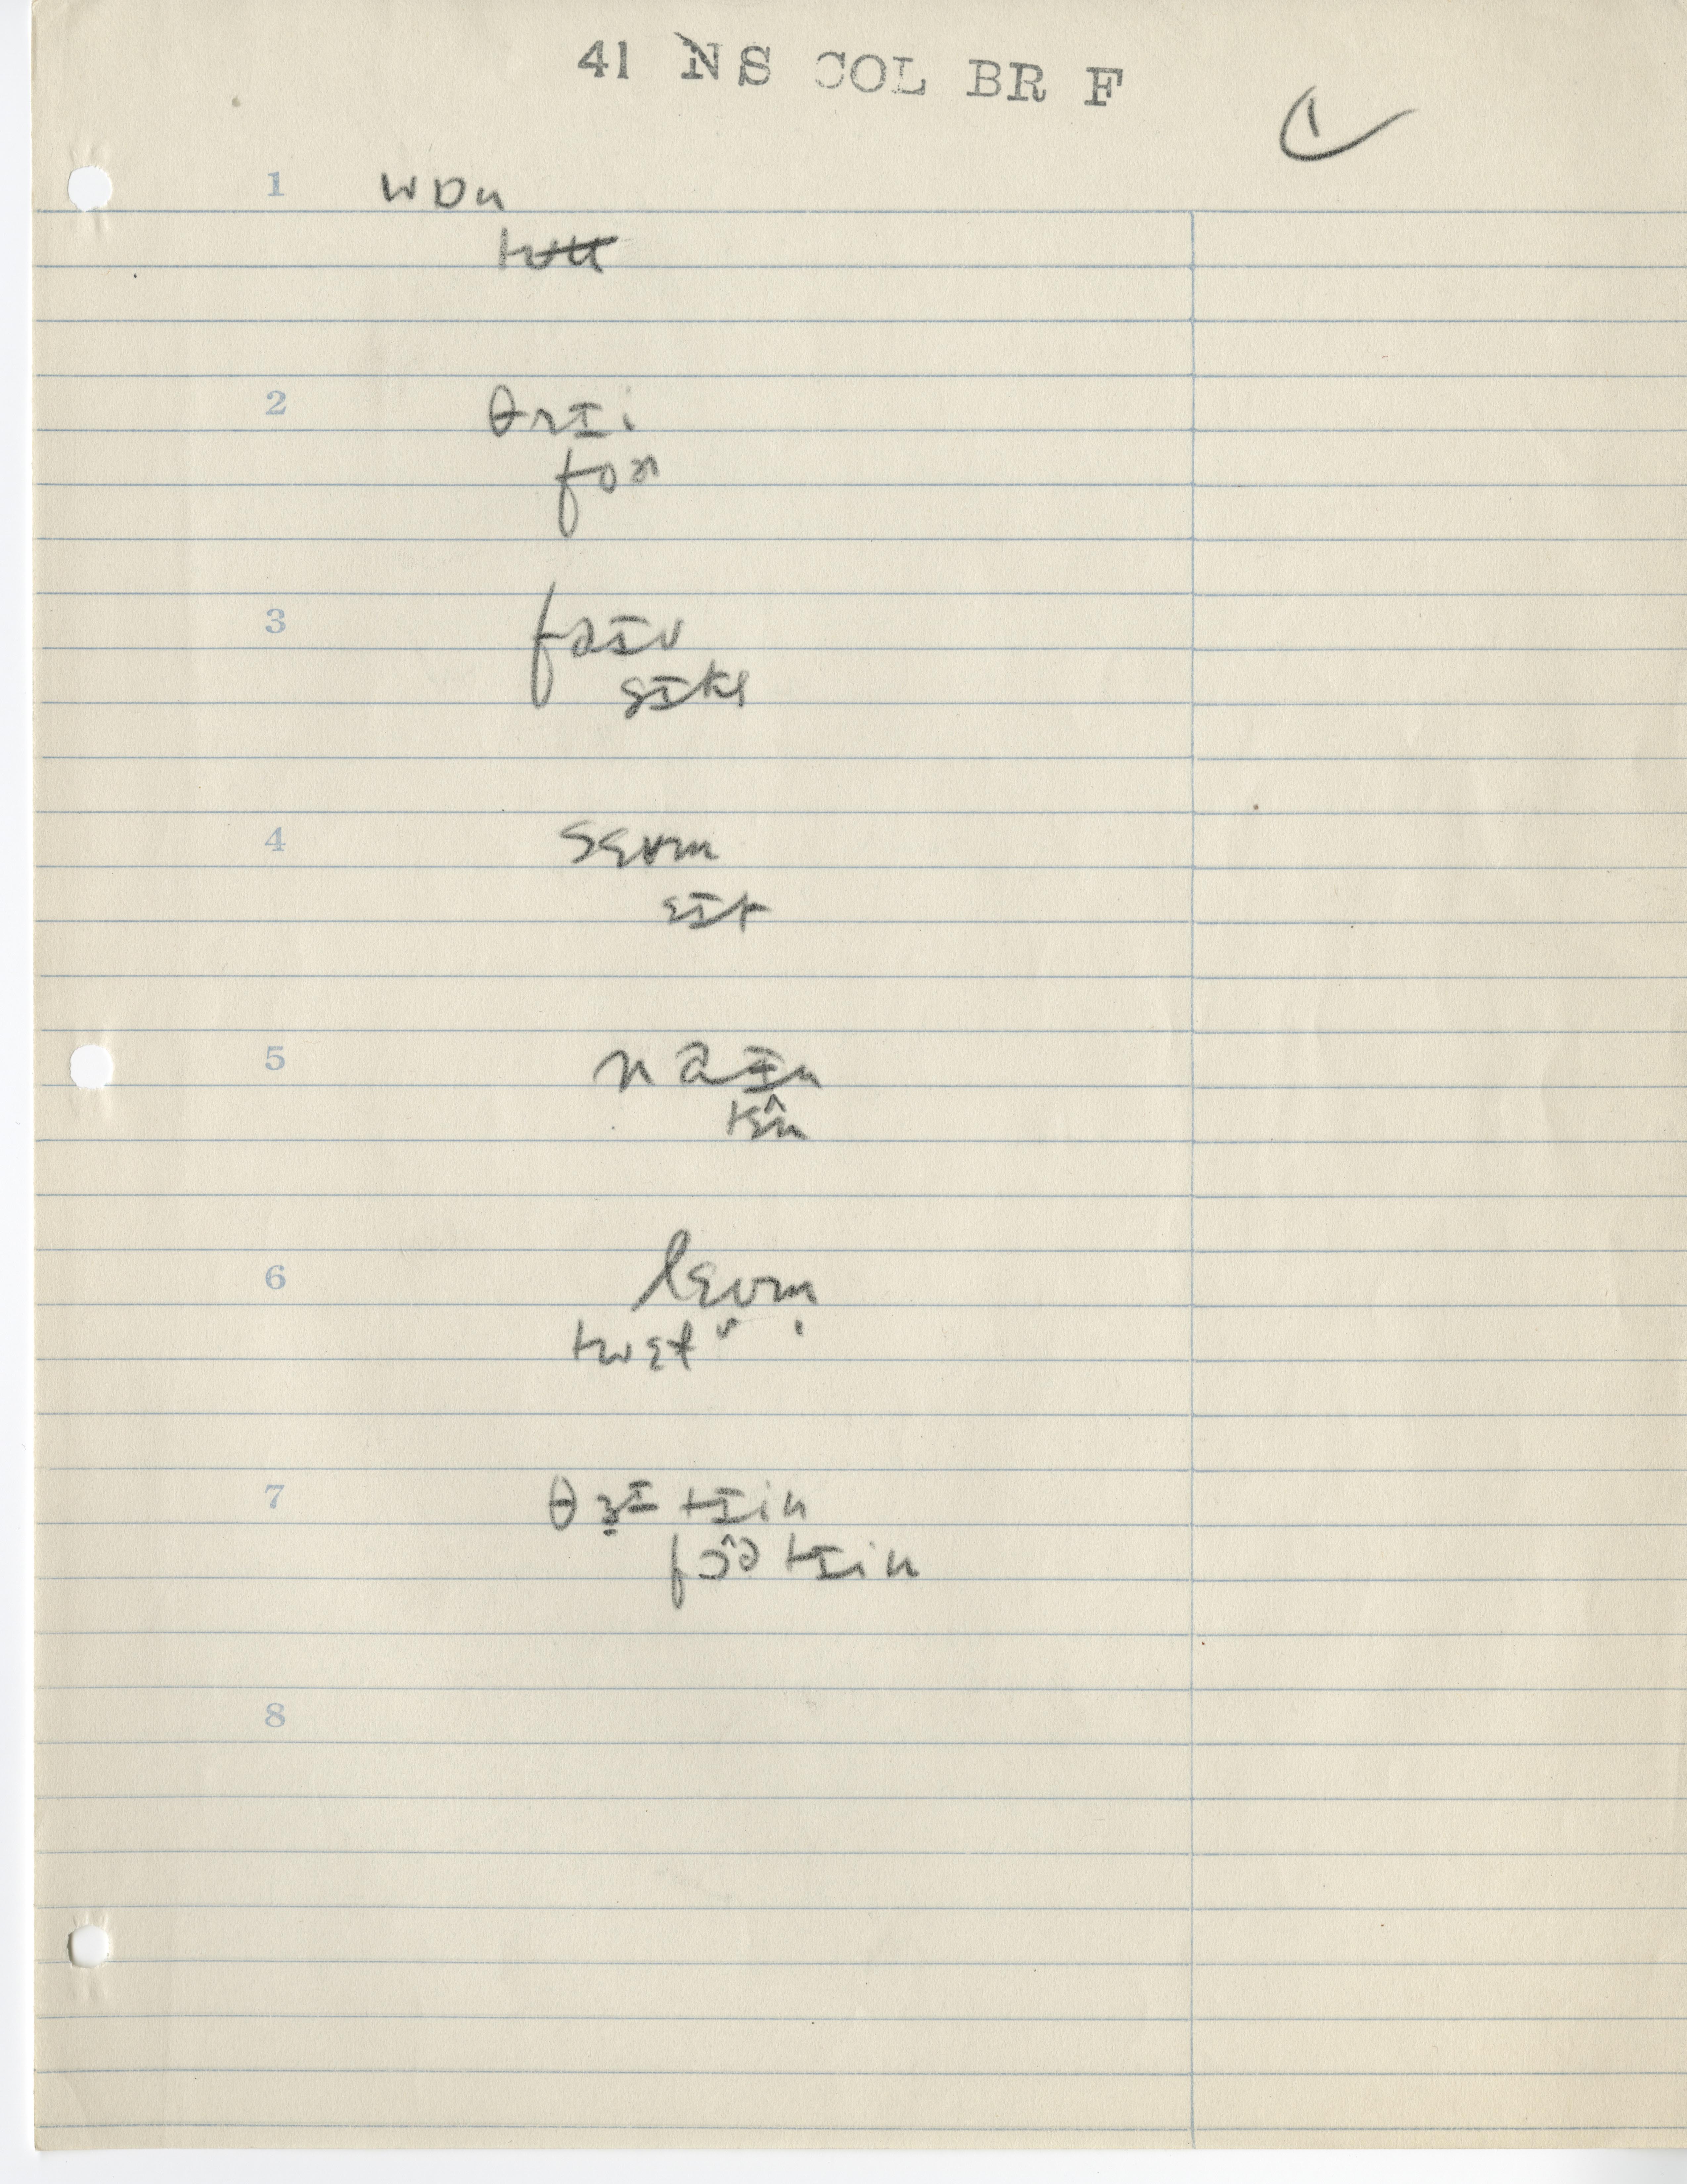 41 NS COL BR F
1
1 wɒn
2 θrɪi
foɚ
3 faɪv
sɪks
4 sɛvm
ɛɪt
5 naɪn
tɛ̂n
6 lɛvm
twɛl v
7 θɜɪ tɪin
fɔ̂ə tɪin
8